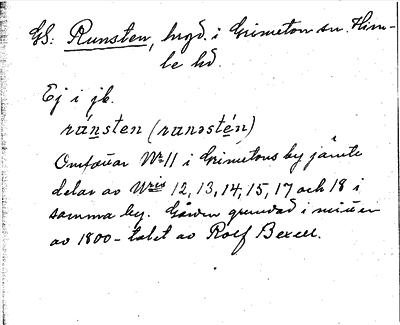 GS: Runsten, hrgd. i Grimeton sn. Him-
le hd.
Ej i jb.
ránsten (ranstén)
Omfattar No 11 i Grimetons by jämte
delar av Nris 12, 13, 14, 15, 17 och 18 i
samma by. Gården grundad i mitten
av 1800-talet av Rolf Bexell.